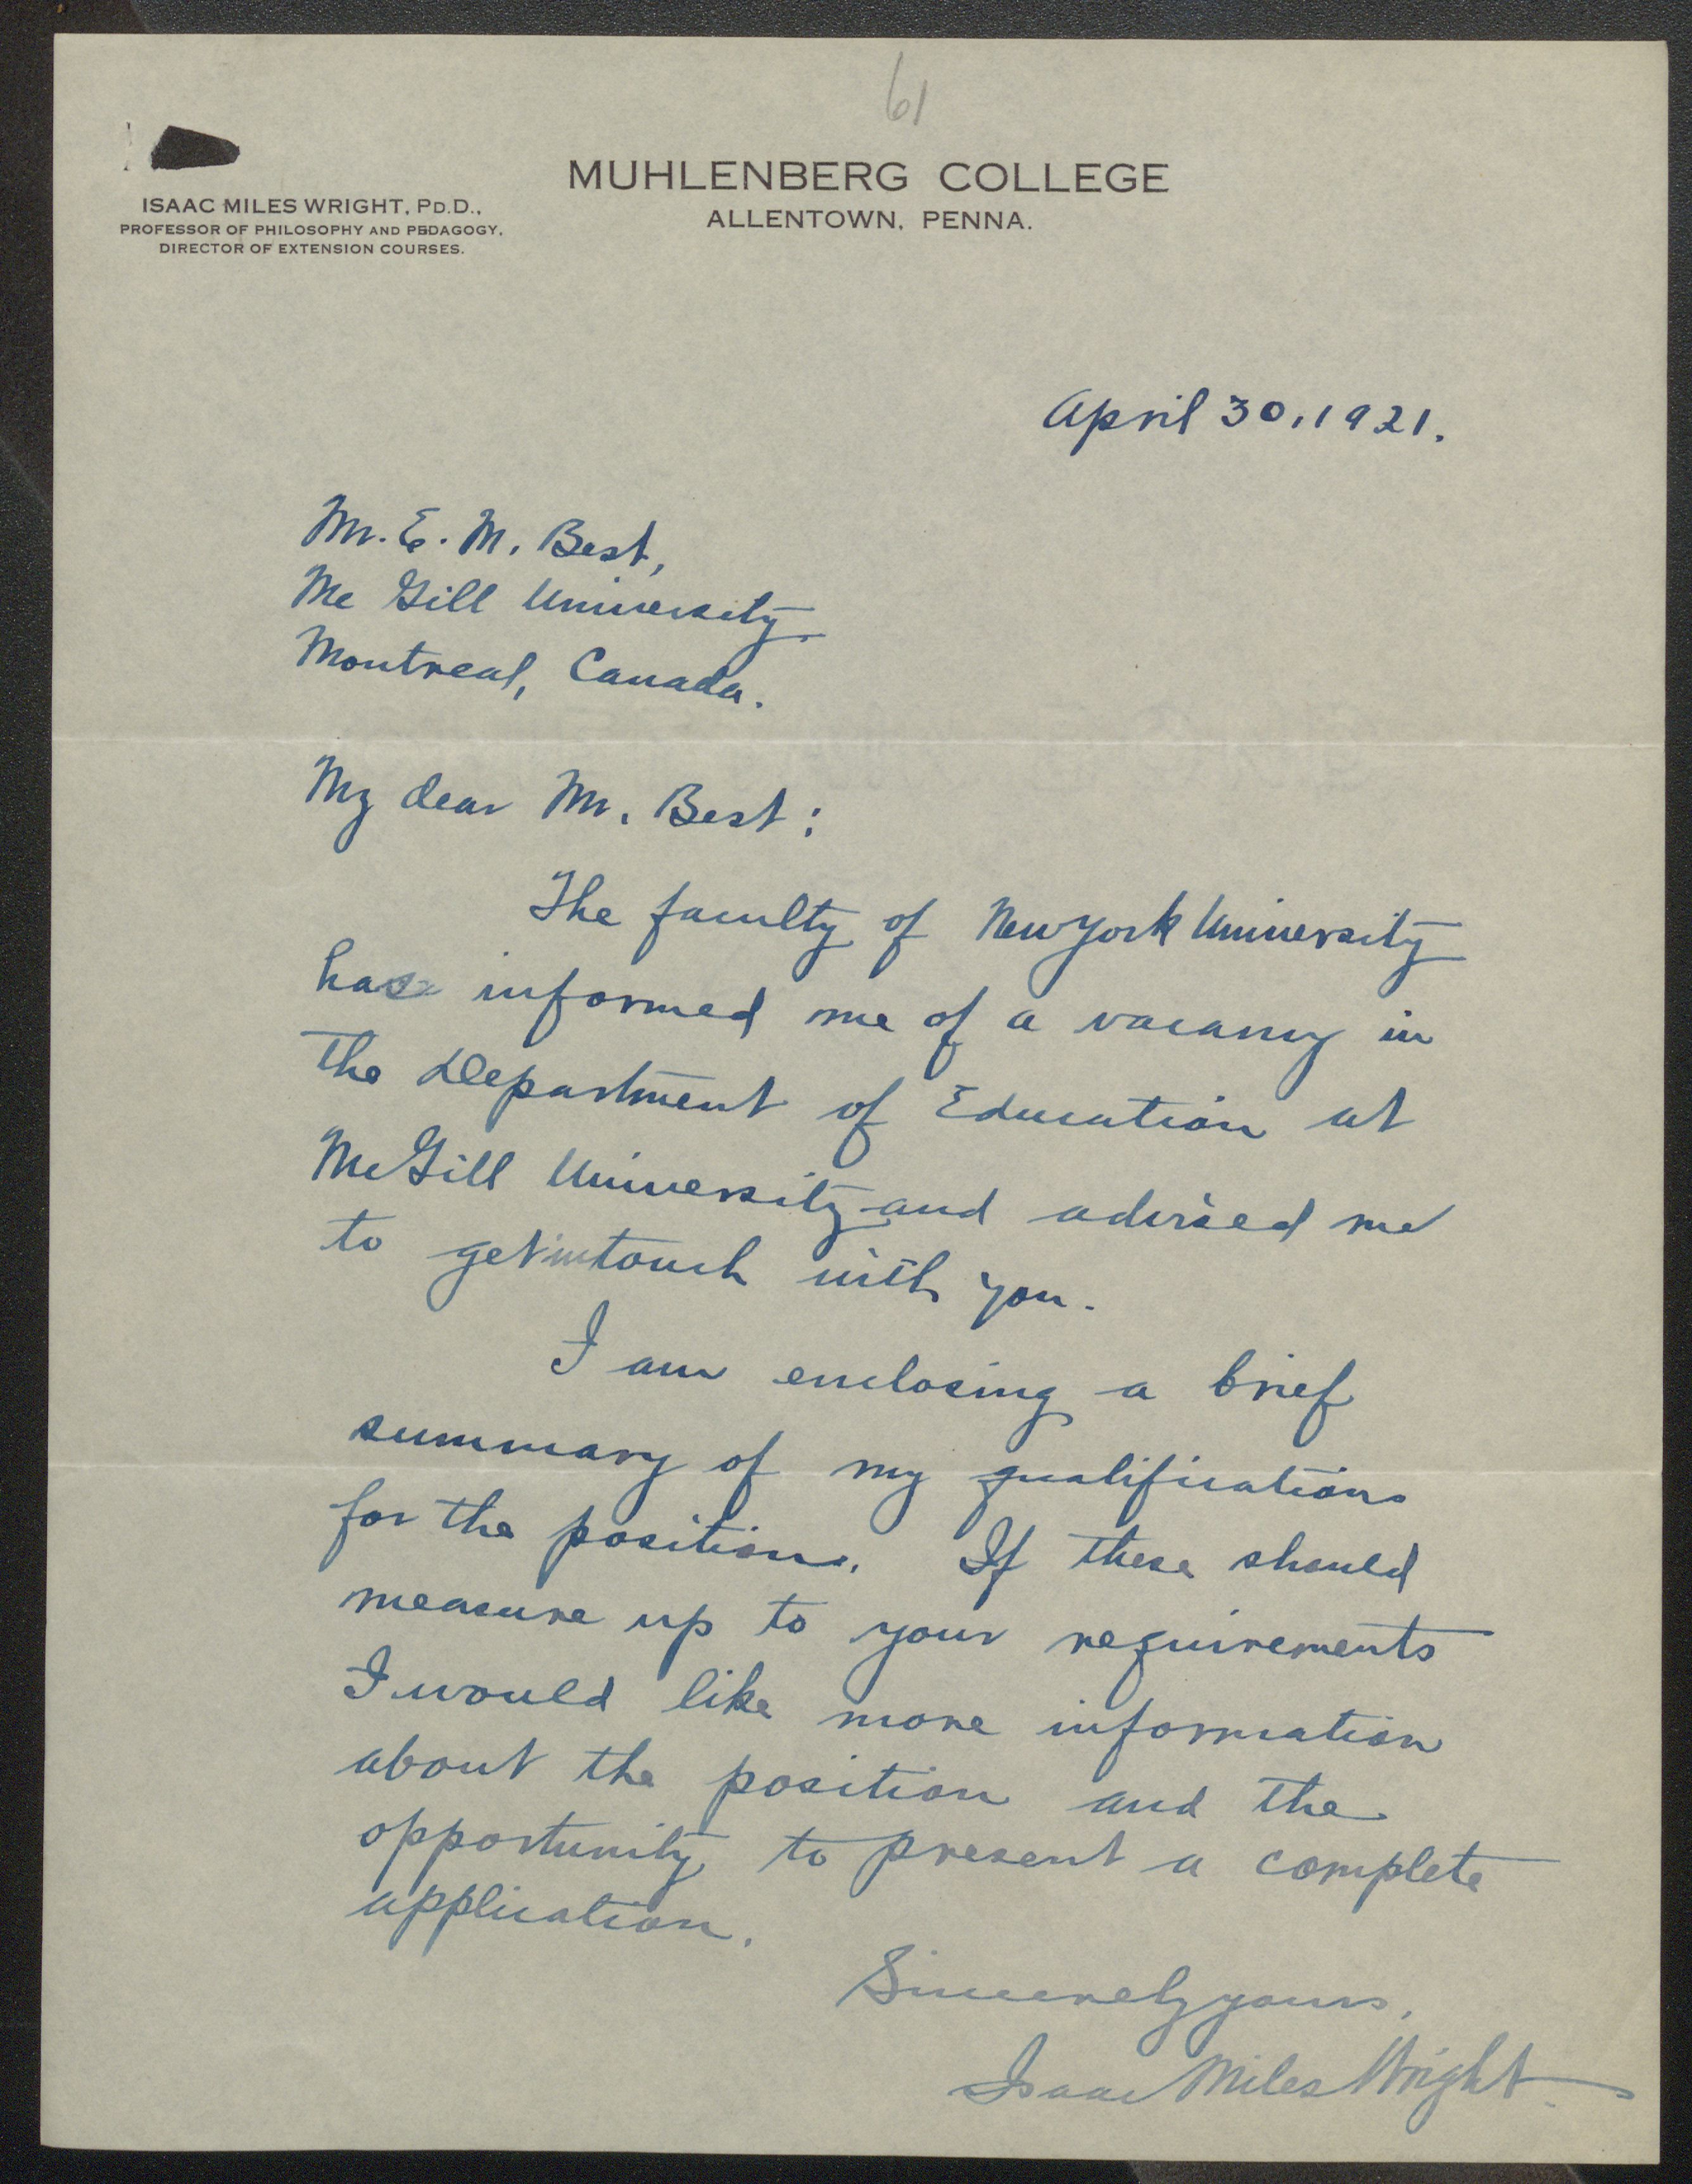 61
MUHLENBERG COLLEGE
ALLENTOWN, PENNA.
ISAAC MILES WRIGHT, PD.D.,
PROFESSOR OF PHILOSOPHY AND PEDAGOGY,
DIRECTOR OF EXTENSION COURSES.
April 30, 1921.
Mr. E. M. Best,
Mc Gill University
Montreal, Canada.
My dear Mr. Best:
The faculty of New York University
has informed me of a vacancy in
the Department of Education at
McGill University and advised me
to get in touch with you.
I am enclosing a brief
summary of my qualifications
for the position. If these should
measure up to your requirements
I would like more information
about the position and the
opportunity to present a complete
application.
Sincerely yours,
Isaac Miles Wright